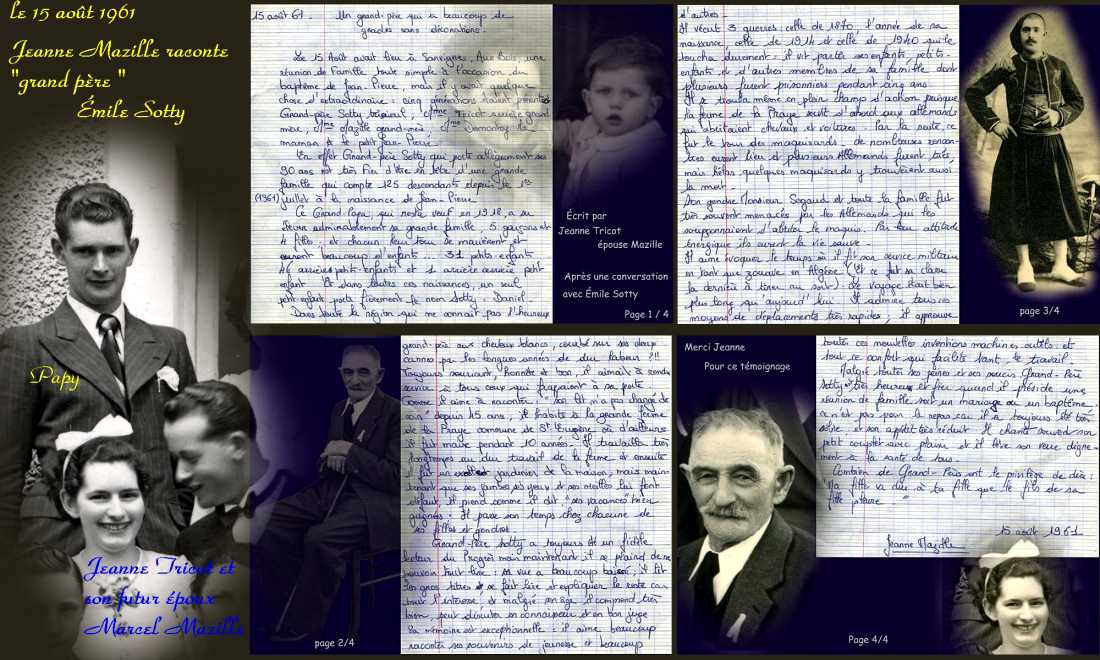 le 15 août 1961
Jeanne Mazille raconte
"grand père "
Émile Sotty
Papy
Jeanne Tricot et
son futur époux
Marcel Mazille
15 août 61. Un grand-père qui a beaucoup de
grades sans décorations.
Le 15 Août avait lieu à Sanvignes, Aux Bois, une
réunion de Famille toute simple à l'occasion du
baptême de Jean-Pierre, mais il y avait quelque
chose d'extraordinaire : cinq générations étaient
Grand-père Sotty trisaïeul, Mme Tricot arrière grand
mère, Mme Mazille grand-mère, Mme la
maman & le petit Jean-Pierre.
En effet Grand-père Sotty qui porte allègrement ses
90 ans est très fier d'être en tête d'une grande
famille qui compte 125 descendants depuis le 1er
(1961) juillet à la naissance de Jean-Pierre.
Ce Grand-Papa, qui resta veuf en 1918, a su
élever admirablement sa grande famille 5 garçons et
4 filles et chacun leur tour se marièrent et
eurent beaucoup d'enfants 31 petits-enfants
46 arrières petits-enfants et 1 arrière arrière petit
enfant. Et dans toutes ces naissances, un seul
petit-enfant porte fièrement le nom Sotty : Daniel.
Dans toute la région qui ne connait pas l'heureux
Écrit par
Jeanne Tricot
épouse Mazille
Après une conversation
avec Émile Sotty
Page 1 / 4
grand-père aux cheveux blancs, courbé sur ses deux
cannes par les longues années de dur labeur ?!!
Toujours souriant, honnête et bon, il aimait à rendre
service à tous ceux qui frappaient à sa porte.
Comme il aime à raconter "son lit n'a pas changé de
coin" depuis 45 ans il habite à la grande ferme
de la Praye commune de St Eugène où d'ailleurs
il fut maire pendant 10 années. Il travailla très
longtemps au dur travail de la ferme et ensuite
il fut un excellent jardinier de la maison, mais main-
tenant que ses jambes ses yeux et ses oreilles lui font
défaut il prend comme il dit "ses vacances" bien
gagnées. Il passe son temps chez chacune de
ses filles et gendres.
Grand-Père Sotty a toujours été un fidèle
lecteur du Progrès mais maintenant il se plaint de ne
pouvoir tout lire : sa vue a beaucoup baissé, il lit
les gros titres & se fait lire et expliquer le reste car
tout l'intéresse et malgré son âge il comprend très
bien, peut discuter en connaisseur et en bon juge
Sa mémoire est exceptionnelle : il aime beaucoup
raconter ses souvenirs de jeunesse et beaucoup
page 2/4
d'autres.
Il vécut 3 guerres : celle de 1870, l'année de sa
naissance, celle de 1914 et celle de 1940 qui le
toucha durement : il vit partir ses enfants, petits-
enfants et d'autres membres de sa famille dont
plusieurs furent prisonniers pendant cinq ans.
Il se trouva même en plein champ d'action puisque
la ferme de la Praye servit d'abord aux allemands
qui abritaient chevaux et voitures. Par la suite, ce
fut le tour des maquisards : de nombreuses rencon-
tres eurent lieu et plusieurs Allemands furent tués,
mais hélas quelques maquisards y trouvèrent aussi
la mort.
Son gendre Monsieur Segaud et toute la famille fut
très souvent menacés par les Allemands qui les
soupçonnaient d'abriter le maquis. Par leur attitude
énergique ils eurent la vie sauve.
Il aime évoquer le temps où il fit son service militaire
en tant que zouave en Algérie (Et ce fut sa classe
la dernière à tirer au sort). Le voyage était bien
plus long qu'aujourd'hui. Il admire tous ces
moyens de déplacements très rapides, il approuve
page 3/4
toutes ces nouvelles inventions machines outils et
tout ce confort qui facilite tant le travail.
Malgré toutes ses peines et ses soucis Grand-Père
Sotty est très heureux et fier quand il préside une
réunion de famille soit un mariage ou un baptême.
ce n'est pas pour le repas car il a toujours été très
sobre et son appétit très réduit. Il chante souvent son
petit couplet avec plaisir et il lève son verre digne-
ment à la santé de tous.
Combien de Grand-Pères ont le privilège de dire :
"Ma fille va dire à ta fille que le fils de sa
fille pleure "
15 août 1961
Jeanne Mazille
Merci Jeanne
Pour ce témoignage
Page 4/4